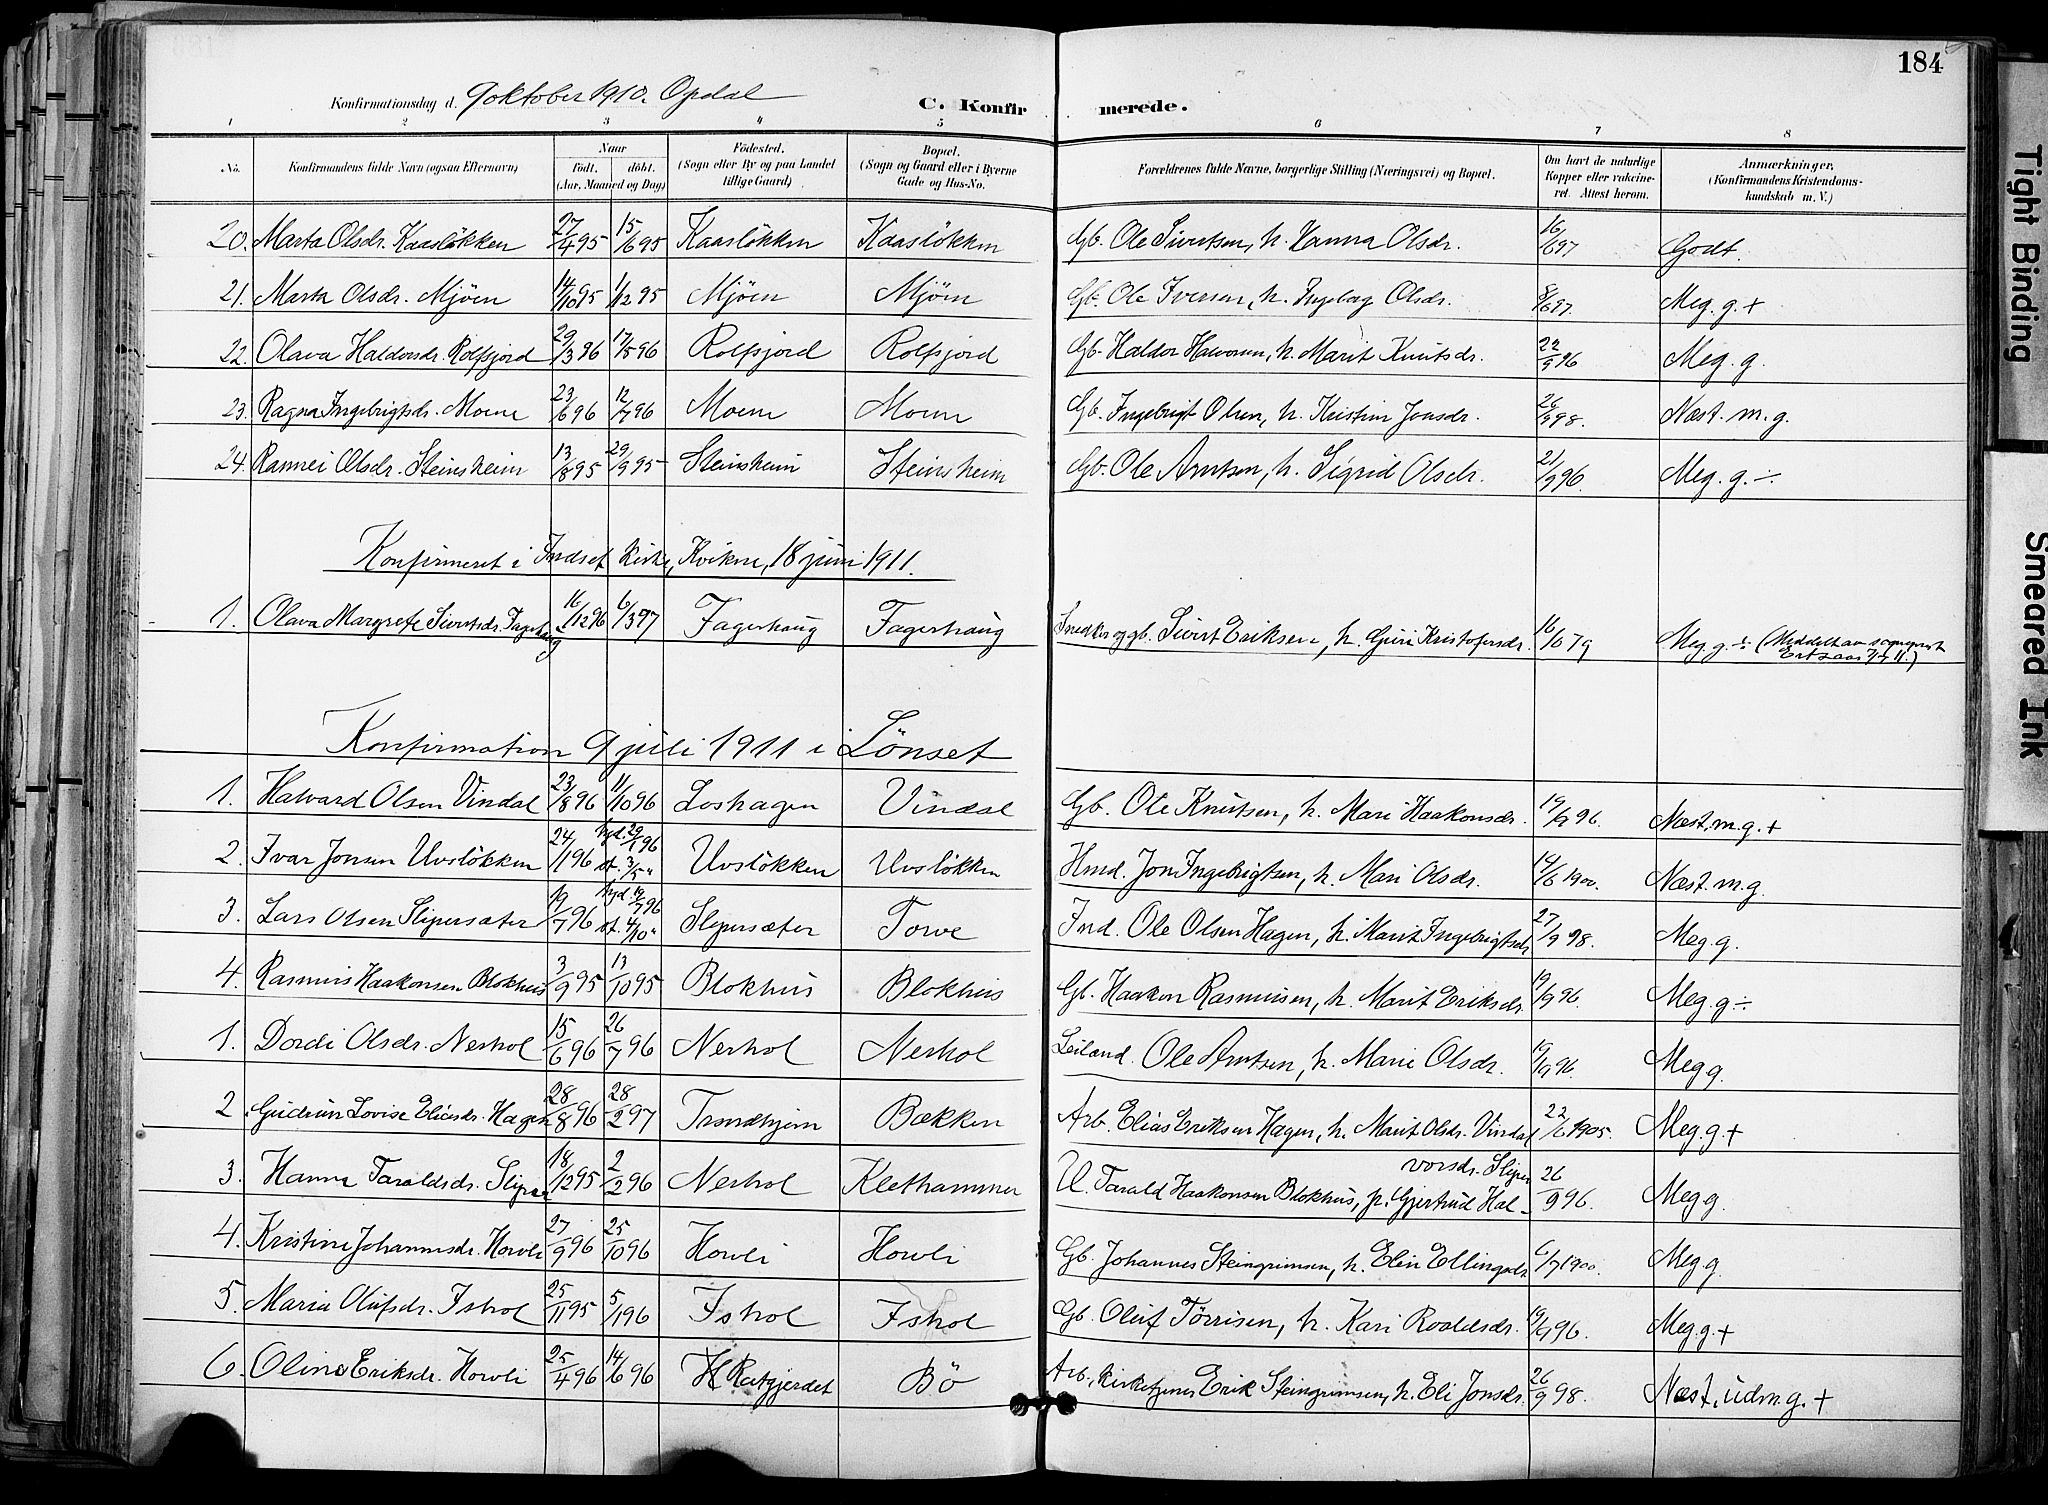 184
Konfirmationsdag d. 9 oktober 1910. Opdal C. Konfirmerede.
1 2 3 4 5 6 7 8
No. Konfirmandens fulde Navn (ogsaa Efternavn) Naar født. døbt. (Aar, Maaned og Dag) Fødested. (Sogn eller By og paa Landet tillige Gaard) Bopæl. (Sogn og Gaard eller i Byerne Gade og Hus-No. Forældrenes fulde Navne, borgerlige Stilling (Næringsvei) og Bopæl. Om havt de naturlige Kopper eller vakcineret. Attest herom. Anmærkninger. (Konfirmandens Kristendomskundskab m. V.)
20. Marta Olsdr. Kaasløkken 27/4 95 15/6 95 Kaasløkken Kaasløkken Gb. Ole Sivertsen, h. Hanna Olsdr. 16/6 97 Godt.
21. Marta Olsdr. Mjøen 14/10 95 1/12 95 Mjøen Mjøen Gb. Ole Iversen, h. Ingeborg Olsdr. 8/6 97. Meg. g. +
22. Olava Haldorsdr. Rolfsjord 29/3 96 17/5 96 Rolfsjord Rolfsjord Gb. Haldor Halvorsen, h. Marit Knutsdr. 22/9 96 Meg. g.
23. Ragna Ingebrigtsdr. Moene 23/6 96 12/7 96 Moene Moene Gb. Ingebrigt Olsen, h. Kristine Jonsdr. 26/9 98. Næst. m. g.
24. Rannei Olsdr. Steinsheim 13/8 95 29/9 95 Steinsheim Steinsheim Gb. Ole Arntsen, h. Sigrid Olsdr. 21/9 96. Meg. g. ÷
Konfirmeret i Indset Kirke, Kvikne, 18 juni 1911.
1. Olava Margrete Sivertsdr. Fagerhaug 16/12 96 6/3 97 Fagerhaug Fagerhaug Snedker og gb. Sivert Eriksen, h. Guri Kristofersdr. Meg. g. ÷ (Meddelt av sogneprest
1. Halvard Olsen Vindal 23/8 96 11/10 96 Loshagen Vindal Gb. Ole Knutsen, h. Mari Haakonsdr. 19/9 96. Næst. m. g. +
Konfirmation 9 juli 1911 i Lønset
2. Ivar Jonsen Uvsløkken 24/1 96 hjd. 29/1 96 st. 3/5 " Uvsløkken Uvsløkken Hmd. Jon Ingebrigtsen, h. Mari Olsdr. 14/6 1900. Næst. m. g.
3. Lars Olsen Slipersæter 19/7 96 hjd 19/7 96 st. 4/10 " Slipersæter Torve Ind. Ole Olsen Hagen, h. Marit Ingebrigtsdr 27/9 98. Meg. g.
4. Rasmus Haakonsen Blokhus 3/9 95 13/10 95 Blokhus Blokhus Gb. Haakon Rasmusen, h. Marit Eriksdr. 19/9 96. Meg. g ÷
1. Dordi Olsdr. Nerhol 15/6 96 26/7 96 Nerhol Nerhol Leiland. Ole Arntsen, h. Marie Olsdr. 19/9 96. Meg g.
2 Gudrun Lovise Eliasdr. Hagen 28/8 96 28/2 97 Trondhjem Bækken Arb. Elias Eriksen Hagen, h. Marit Olsdr. Vindal 22/6 1905. Meg. g. +
3. Hanna Taraldsdr. Sliper 18/12 95 2/2 96 Nerhol Klethammer U. Tarald Haakonsen Blokhus, p. Gjertrud Halvorsdr. Sliper 26/9 96. Meg g.
4. Kristine Johannesdr. Horvli 27/9 96 25/10 96 Horvli Horvli Gb. Johannes Steingrimsen, h. Elin Ellingsdr. 6/7 1900. Meg. g.
5. Maria Olufsdr. Ishol 25/11 95 5/1 96 Ishol Ishol Gb. Oluf Tørrisen, h. Kari Roaldsdr. 19/9 96. Meg. g +
6. Oline Eriksdr. Horvli 25/4 96 14/6 96 Bø Arb., Kirketjener Erik Steingrimsen, h. Eli Jonsdr. 26/9 98. Næst. udm. g. +
Tight Binding
Smeared Ink